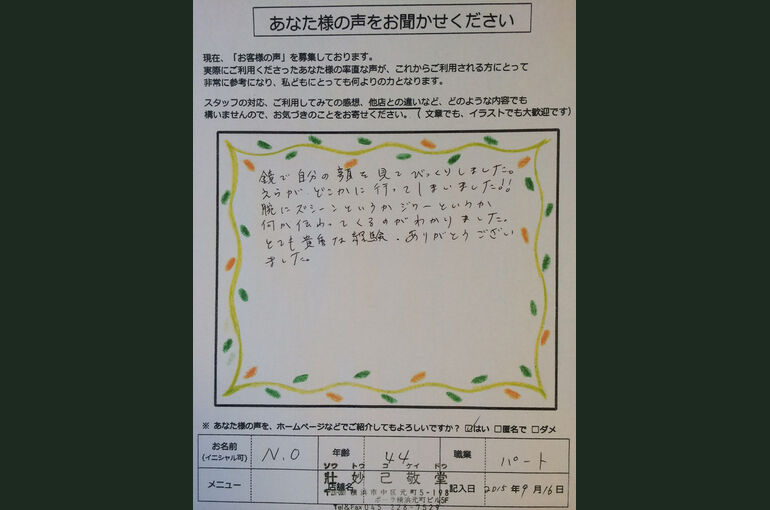 あなた様の声をお聞かせください
現在、「お客様の声」を募集しております。
実際にご利用くださったあなた様の率直な声が、これからご利用される方にとって
非常に参考になり、私どもにとっても何よりの力となります。
スタッフの対応、ご利用してみての感想、他店との違いなど、どのような内容でも
構いませんので、お気づきのことをお寄せください。（ 文章でも、イラストでも大歓迎です）
鏡で自分の顔を見てびっくりしました。
えらが、どこかに行ってしまいました!!
腕にズシーンというかジワーというか
何か伝わってくるのがわかりました。
とても貴重な経験、ありがとうござい
ました。
※ あなた様の声を、ホームページなどでご紹介してもよろしいですか？ ☑はい □匿名で □ダメ
お名前 (イニシャル可) N.O 年齢 44 職業 パート
ソウ トウ コ ケイ ドウ
壯 妙 己 敬 堂
メニュー 店舗名 横浜市中区元町5-198 記入日 2015年9月16日
ポーラ横浜元町ビル5F
Tel&Fax 045